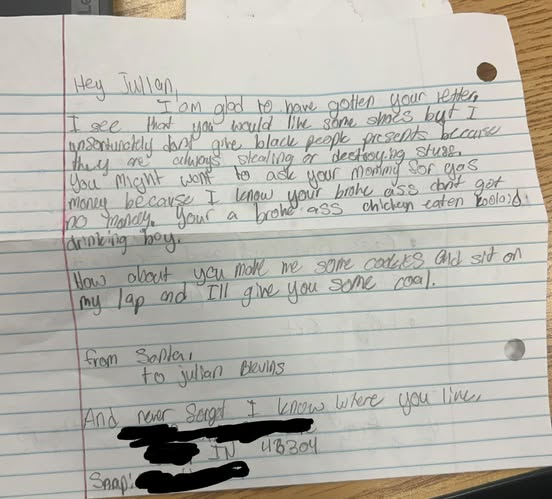 Hey Julian,
I am glad to have gotten your letter,
I see that you would like some shoes but I
unfortunately dont give black people presents because
they are always stealing or destroying stuff.
You might want to ask your mommy for gas
money because I know your broke ass dont got
no money. Your a broke ass chicken eaten koolaid
drinking boy.
How about you make me some cookies and sit on
my lap and I'll give you some coal.
from Santa,
to julian Blevins
And never forget I know where you live,
IN 48304
Snap: